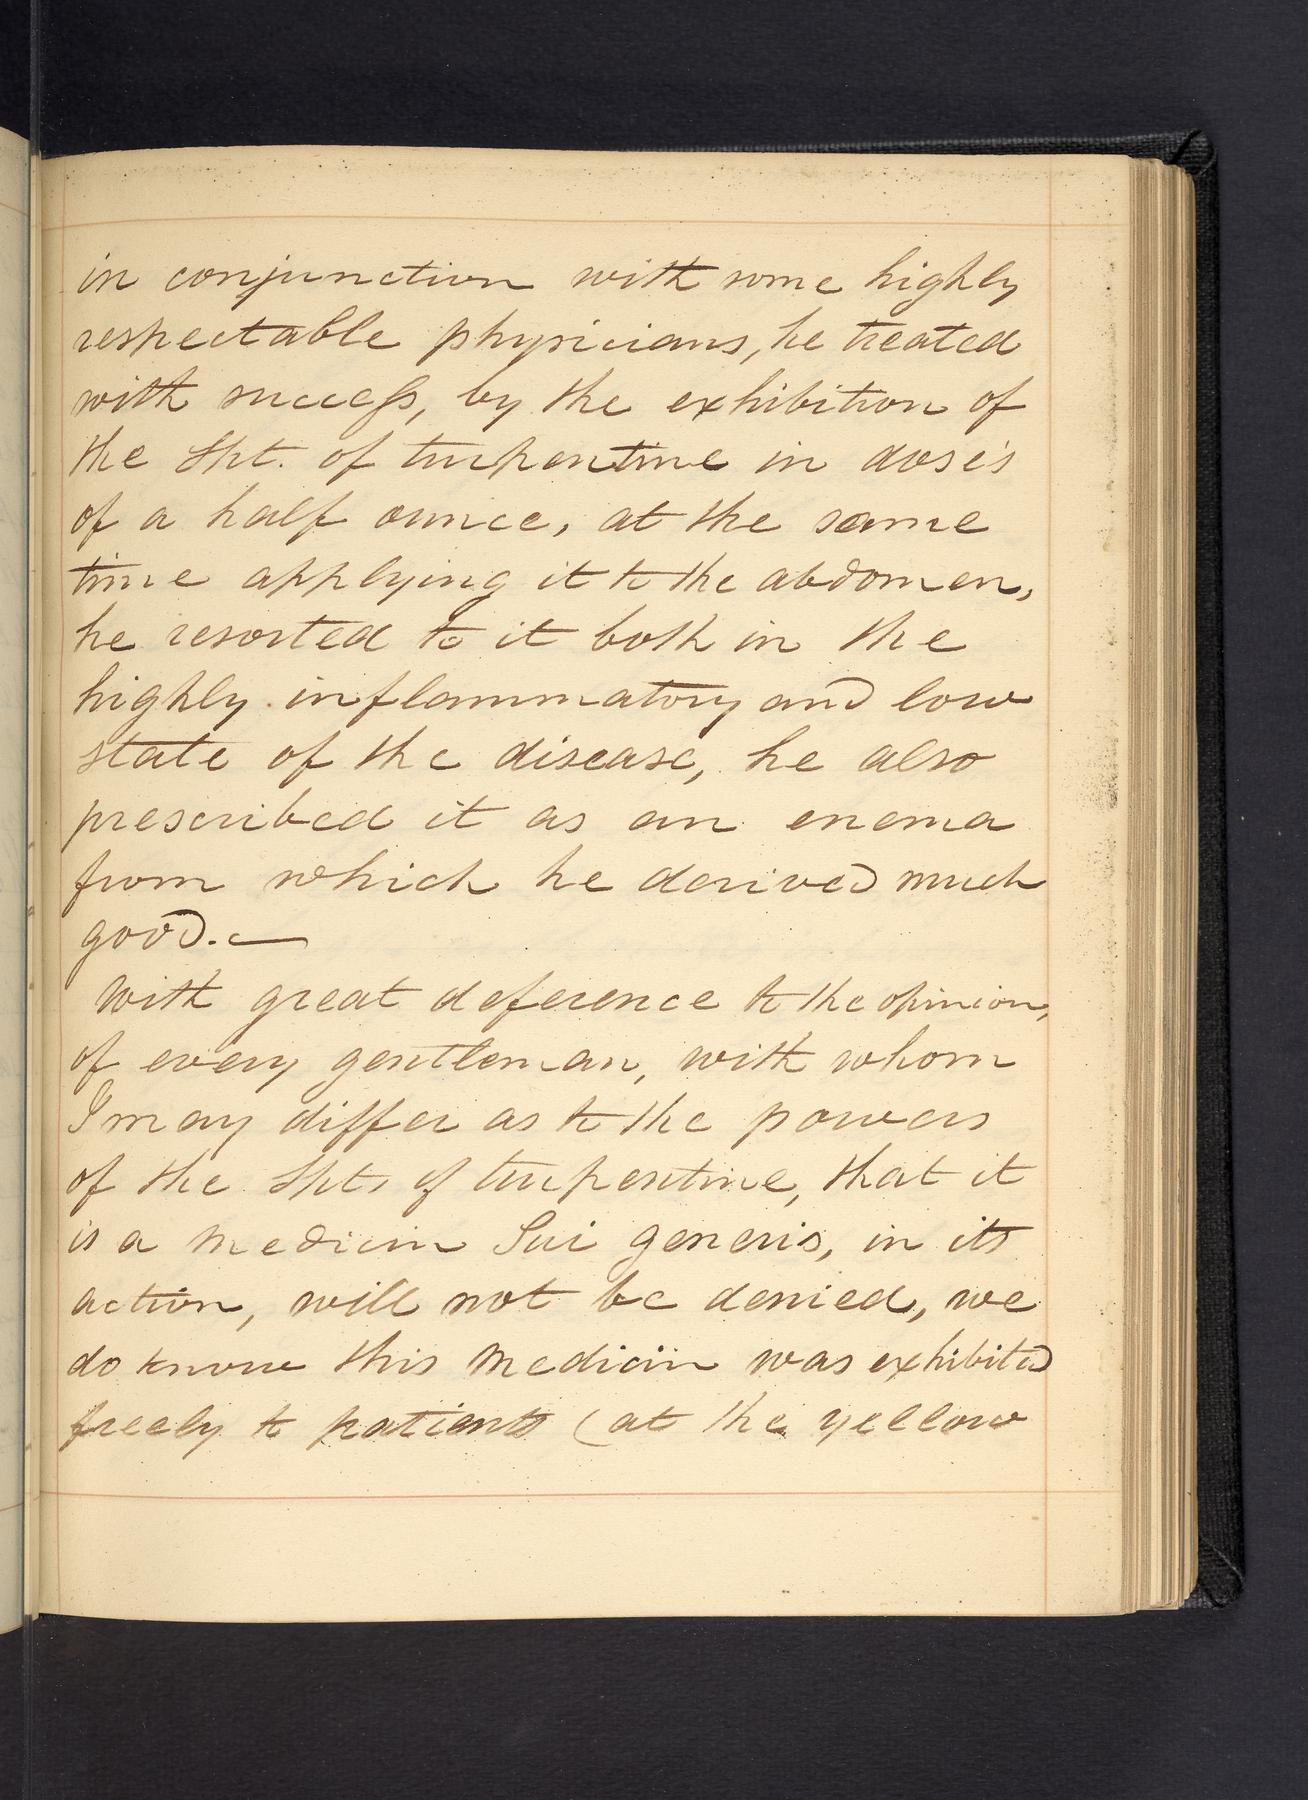 in conjunction with some highly
respectable physicians, he treated
with success, by the exhibition of
the Spt. of turpentine in doses
of a half ounce, at the same
time applying it to the abdomen,
he resorted to it both in the
highly inflammatory and low
state of the disease, he also
prescribed it as an enema
from which he derived much
good. —
With great deference to the opinion,
of every gentleman, with whom
I may differ as to the powers
of the Spts of turpentine, that it
is a medicin Sui generis, in its
action, will not be denied, we
do know this medicin was exhibited
freely to patients (at the yellow